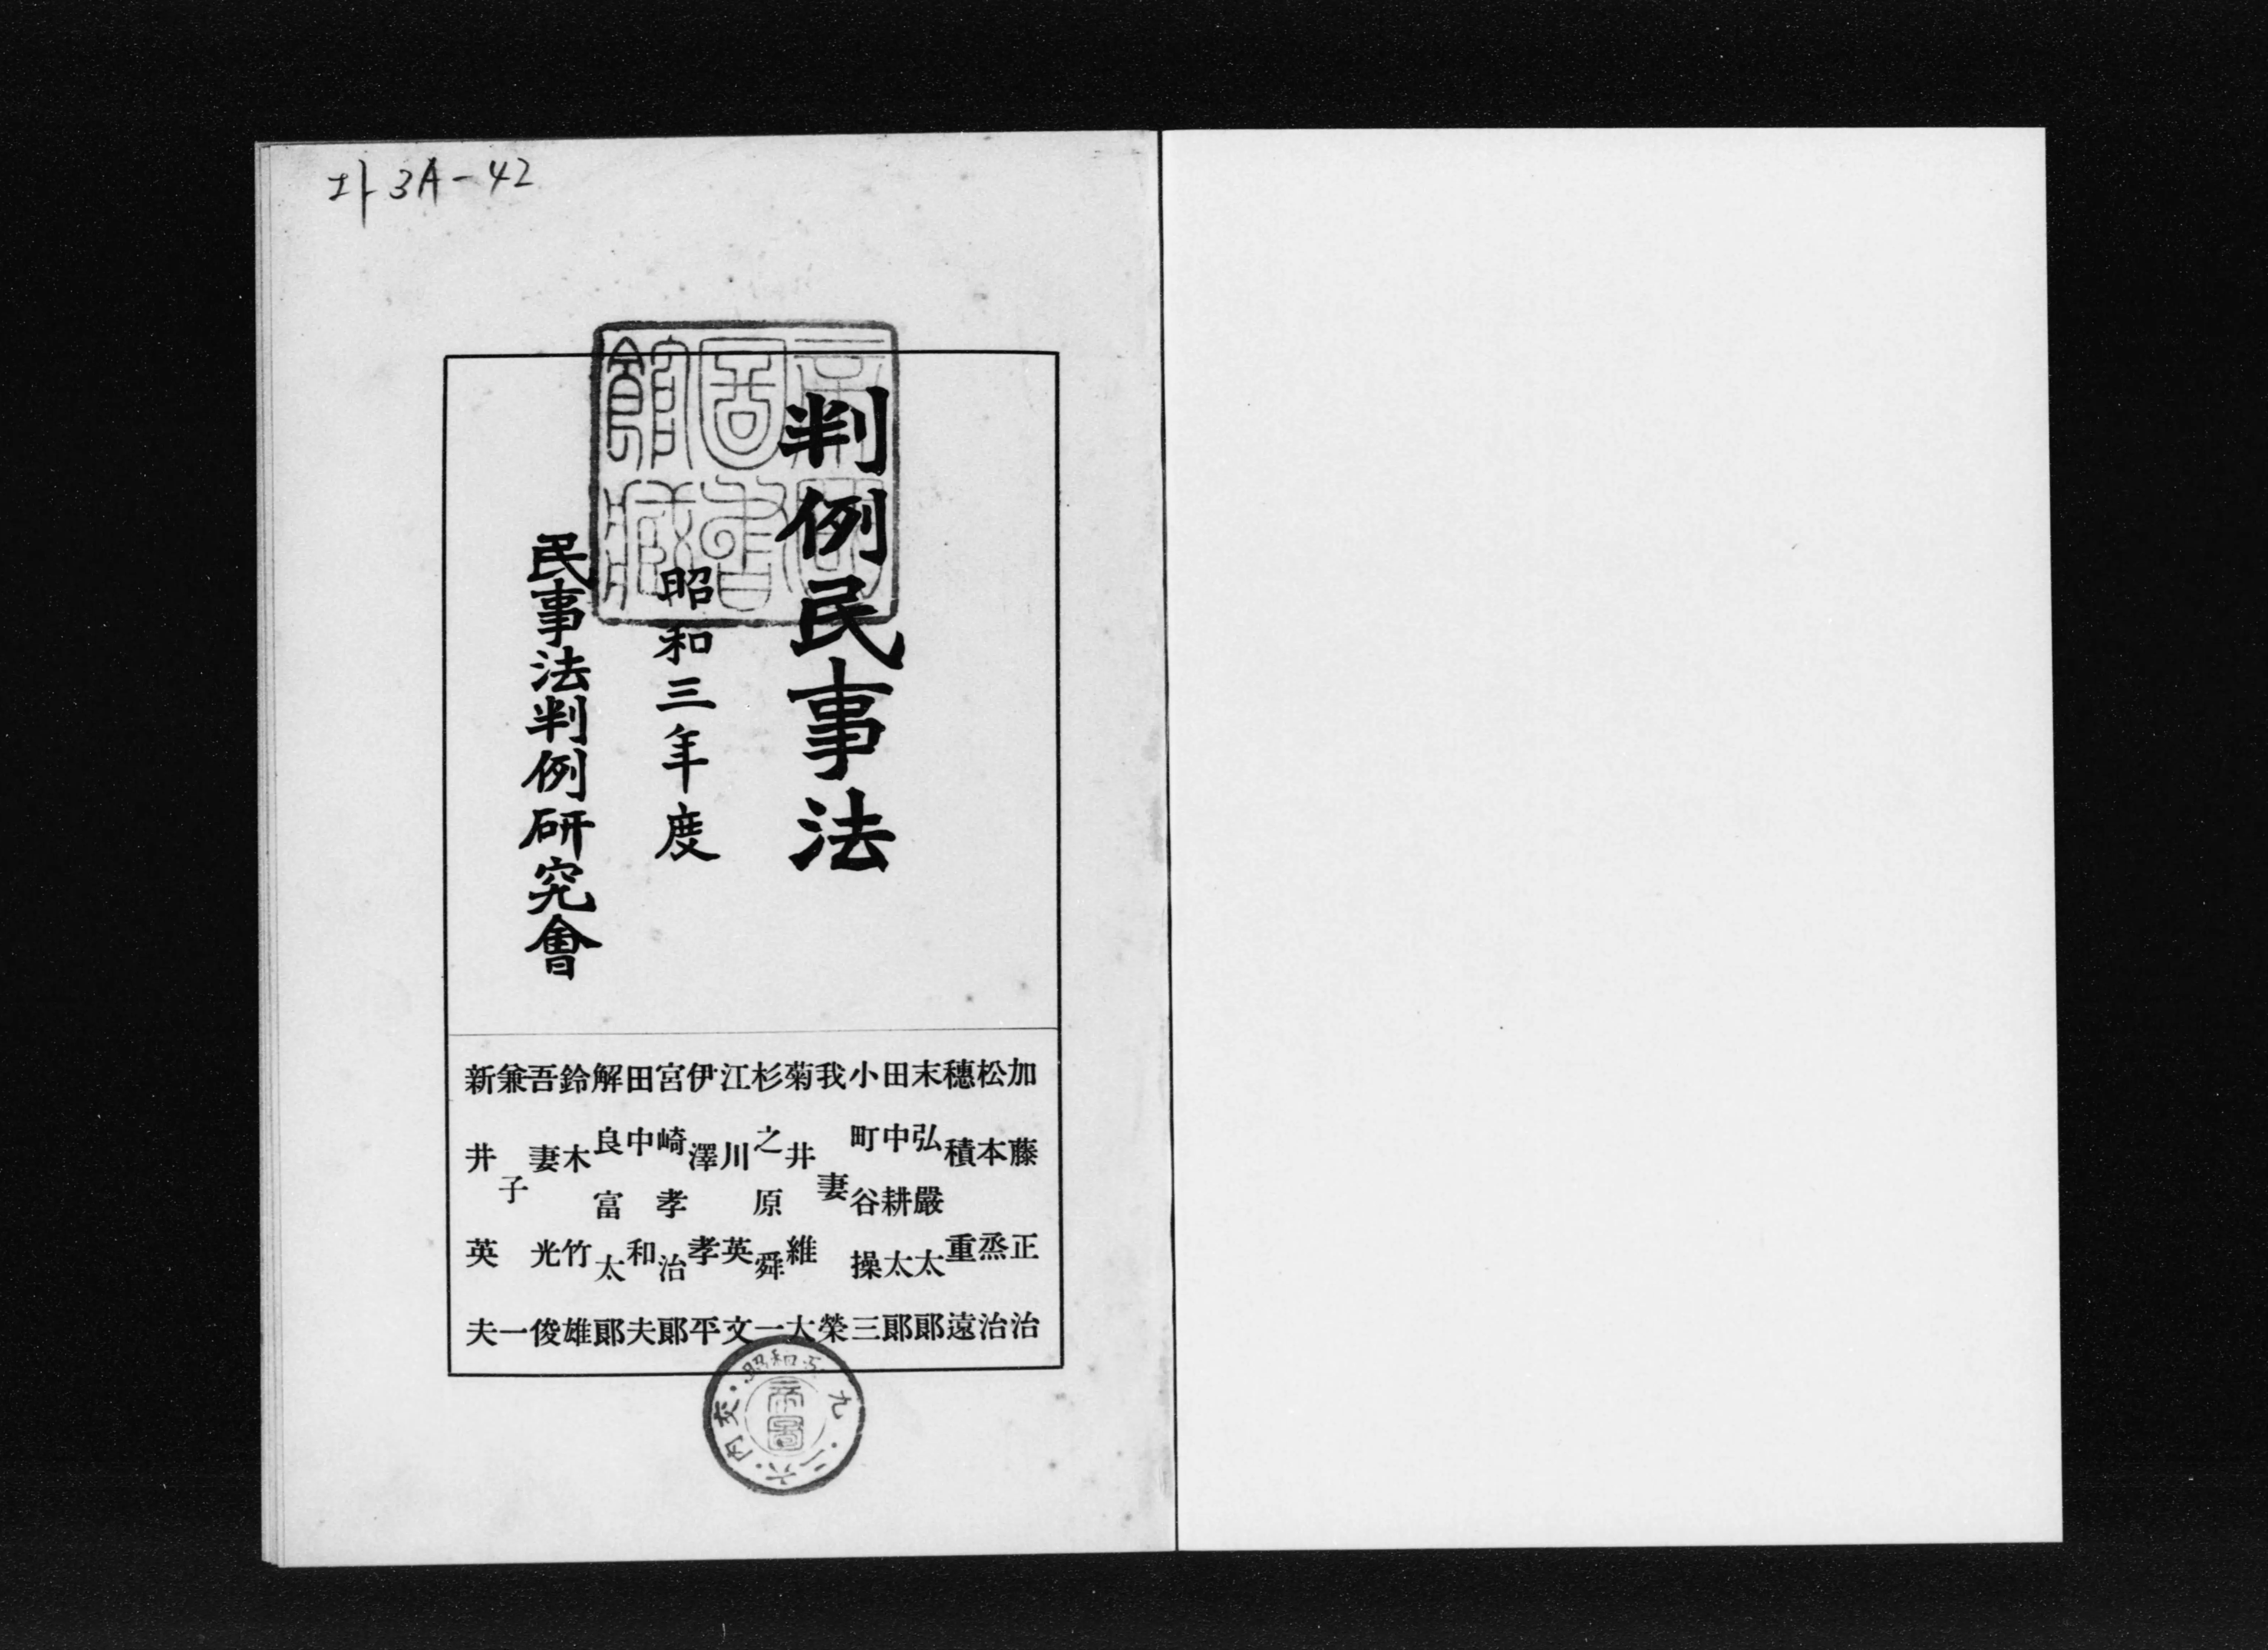 3A-42
判例民事法
昭和三年度
民事法判例研究會
加藤正治
松本烝治
穗積重遠
末弘嚴太郎
田中耕太郎
小町谷操三
我妻榮
菊井維大
杉之原舜一
江川英文
伊澤孝平
宮崎孝治郎
田中和夫
解良富太郎
鈴木竹雄
吾妻光俊
兼子一
新井英夫
帝國圖書館藏
帝圖
昭和五・九・二六・内交・